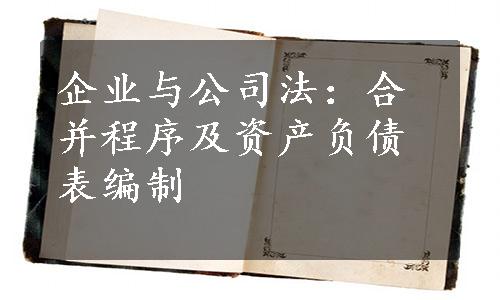 企业与公司法：合
并程序及资产负债
表编制